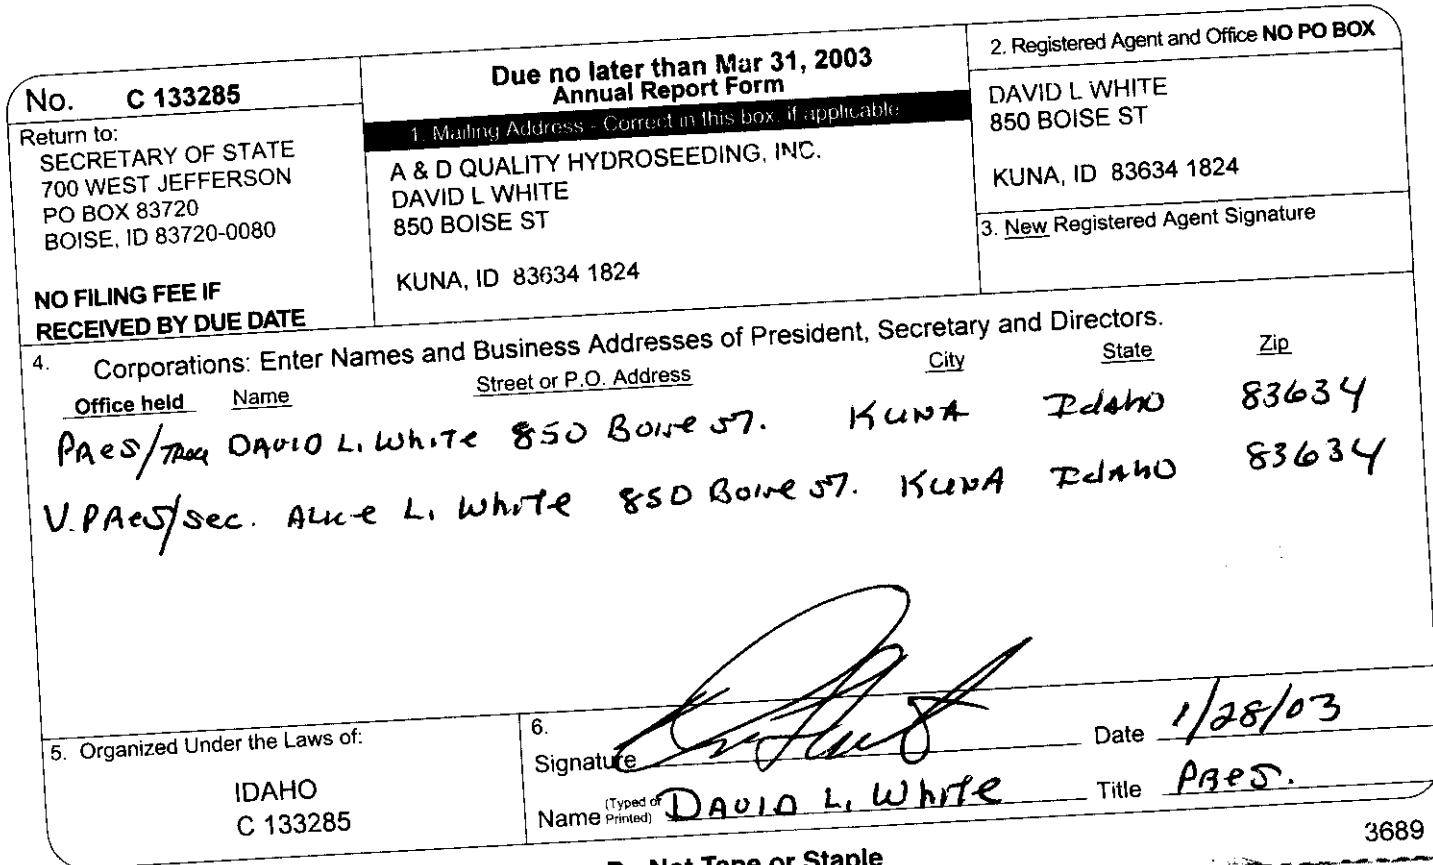 No. C 133285
Return to:
SECRETARY OF STATE
700 WEST JEFFERSON
PO BOX 83720
BOISE, ID 83720-0080
NO FILING FEE IF
RECEIVED BY DUE DATE
Due no later than Mar 31, 2003
Annual Report Form
1. Mailing Address - Correct in this box, if applicable
A & D QUALITY HYDROSEEDING, INC.
DAVID L WHITE
850 BOISE ST
KUNA, ID 83634 1824
2. Registered Agent and Office NO PO BOX
DAVID L WHITE
850 BOISE ST
KUNA, ID 83634 1824
3. New Registered Agent Signature
4. Corporations: Enter Names and Business Addresses of President, Secretary and Directors.
Office held Name Street or P.O. Address City State Zip
Pres/ David L. White 850 Boise St. Kuna Idaho 83634
V. Pres/Sec. Alice L. White 850 Boise St. Kuna Idaho 83634
5. Organized Under the Laws of:
IDAHO
C 133285
6.
Signature Date 1/28/03
Name (Typed or Printed) David L. White Title Pres.
3689
Not Tape or Staple